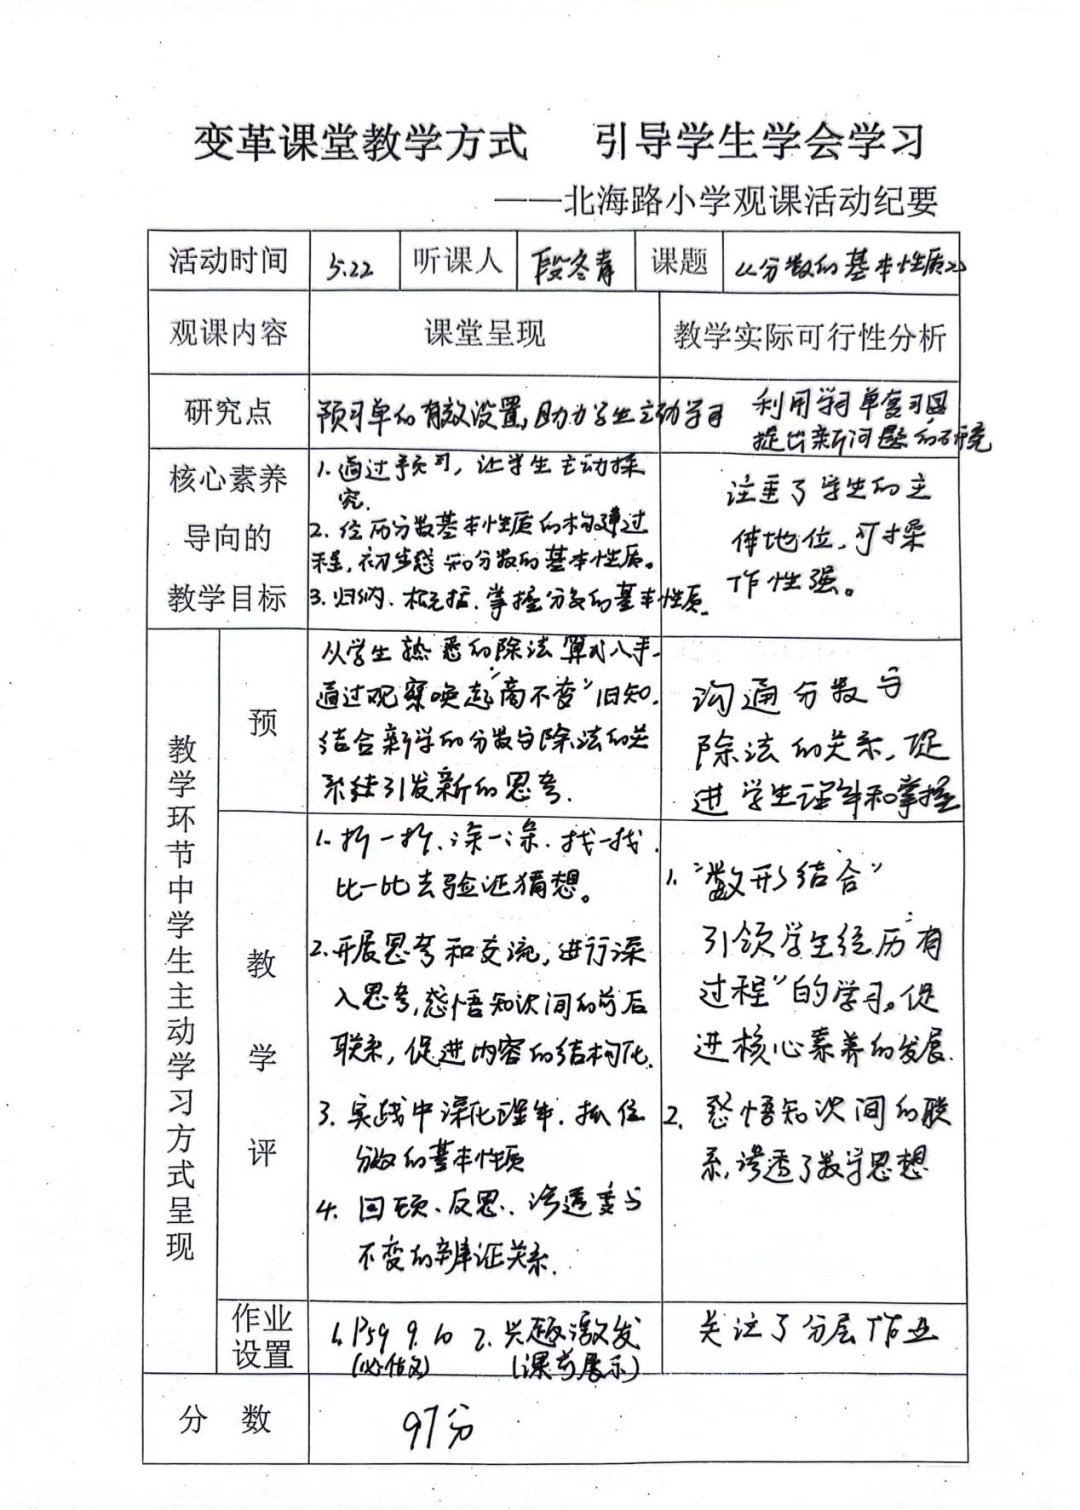 变革课堂教学方式 引导学生学会学习
——北海路小学观课活动纪要
活动时间 5.22 听课人 段冬青 课题 《分数的基本性质》
观课内容 课堂呈现 教学实际可行性分析
研究点 预习单的有效设置,助力学生主动学习 利用学习单复习旧
提出新问题的研究
核心素养
导向的
教学目标
1.通过预习,让学生主动探
究.
2.经历分数基本性质的构建过
程,初步感知分数的基本性质。
3.归纳、概括、掌握分数的基本性质.
注重了学生的主
体地位,可操
作性强。
教学环节中学生主动学习方式呈现
预
从学生熟悉的除法算式入手.
通过观察唤起“商不变”旧知.
结合新学的分数与除法的关
系续引发新的思考.
沟通分数与
除法的关系,促
进学生理解和掌握
教
学
评
1.折一折、涂一涂、找一找.
比一比去验证猜想。
2.开展思考和交流,进行深
入思考,感悟知识间的前后
联系,促进内容的结构化.
3.实践中深化理解.抓住
分数的基本性质
4.回顾、反思、渗透变与
不变的辨证关系.
1.“数形结合”
引领学生经历“有
过程”的学习。促
进核心素养的发展.
2.感悟知识间的联
系,渗透了数学思想
作业
设置
1.P59 9.10 2.兴趣激发
(必做) (课前展示)
关注了分层作业
分 数 97分